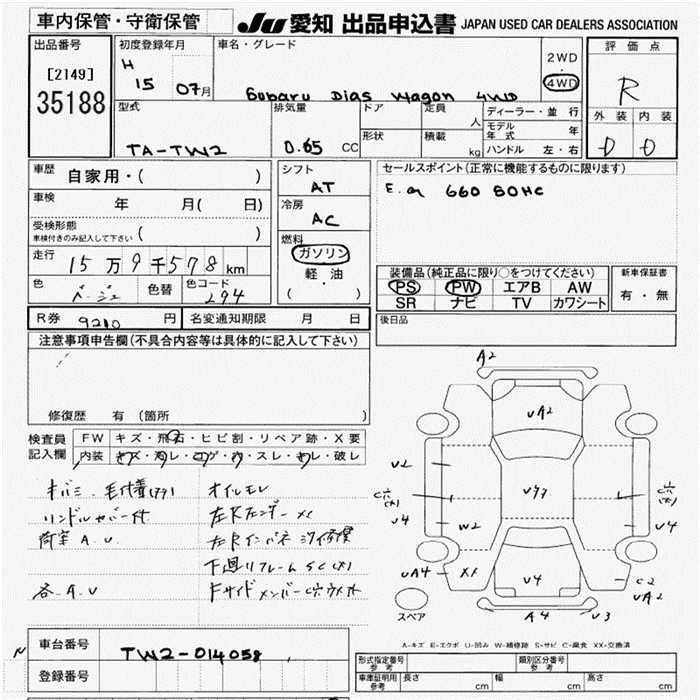 車内保管・守衛保管
JU 愛知 出品申込書 JAPAN USED CAR DEALERS ASSOCIATION
出品番号
[2149]
35188
初度登録年月
H
15 07月
車名・グレード
Subaru Dias Wagon 4WD
2WD
・
4WD
評価点
R
外装 内装
D D
型式
TA-TW2
排気量
0.65 CC
ドア
形状
定員
人
積載
kg
ディーラー・並行
モデル
年式 年
ハンドル 左・右
車歴
自家用・( )
車検
年 月( 日)
受検形態
車検付きのみ記入して下さい ( )
走行
15万9千578km
色
ベージュ
色替
色コード
294
シフト
AT
冷房
AC
燃料
ガソリン
軽・油
( )
セールスポイント(正常に機能するものに限ります)
660 SOHC
装備品(純正品に限り○をつけてください)
PS PW エアB AW
SR ナビ TV カワシート
新車保証書
有・無
R券 9210 円
名変通知期限 月 日
後日品
注意事項申告欄(不具合内容等は具体的に記入して下さい)
修復歴 有 (箇所 )
検査員
記入欄
FW キズ・飛石・ヒビ割・リペア跡・X要
内装 キズ・汚レ・コゲ・穴・スレ・キレ・破レ
オイルモレ
ハンドルカバー付
左Rフェンダー XC
荷室 A.U
下廻りフレーム SC(大)
各.A.U
A2
UA2
U2
U4
W2
U4
U4
UA4
XX
U4
C2
UA2
A4
U3
スペア
A-キズ E-エクボ U-凹み W-補修跡 S-サビ C-腐食 XX-交換済
車台番号
TW2-014058
登録番号
形式指定番号
参考
類別区分番号
参考
車庫証明用
参考
長さ cm
幅 cm
高さ cm